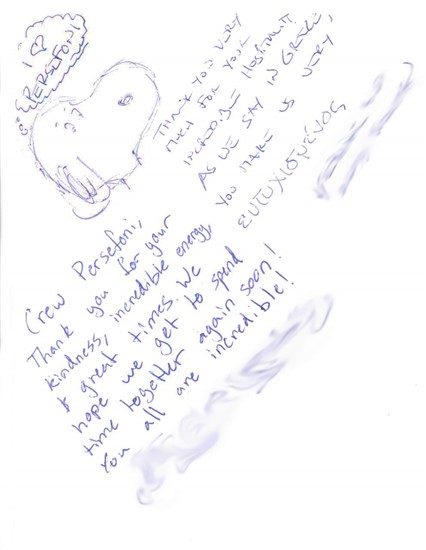 I ♡
PERSEFONI
THANK YOU VERY
MUCH FOR YOUR
INCREDIBLE HOSPITALITY
AS WE STAY IN GREECE,
YOU MAKE US VERY
ευτυχισμένος
Crew Persefoni,
Thank you for your
kindness, incredible energy
& great times. We
hope we get to spend
time together again soon!
You all are incredible!